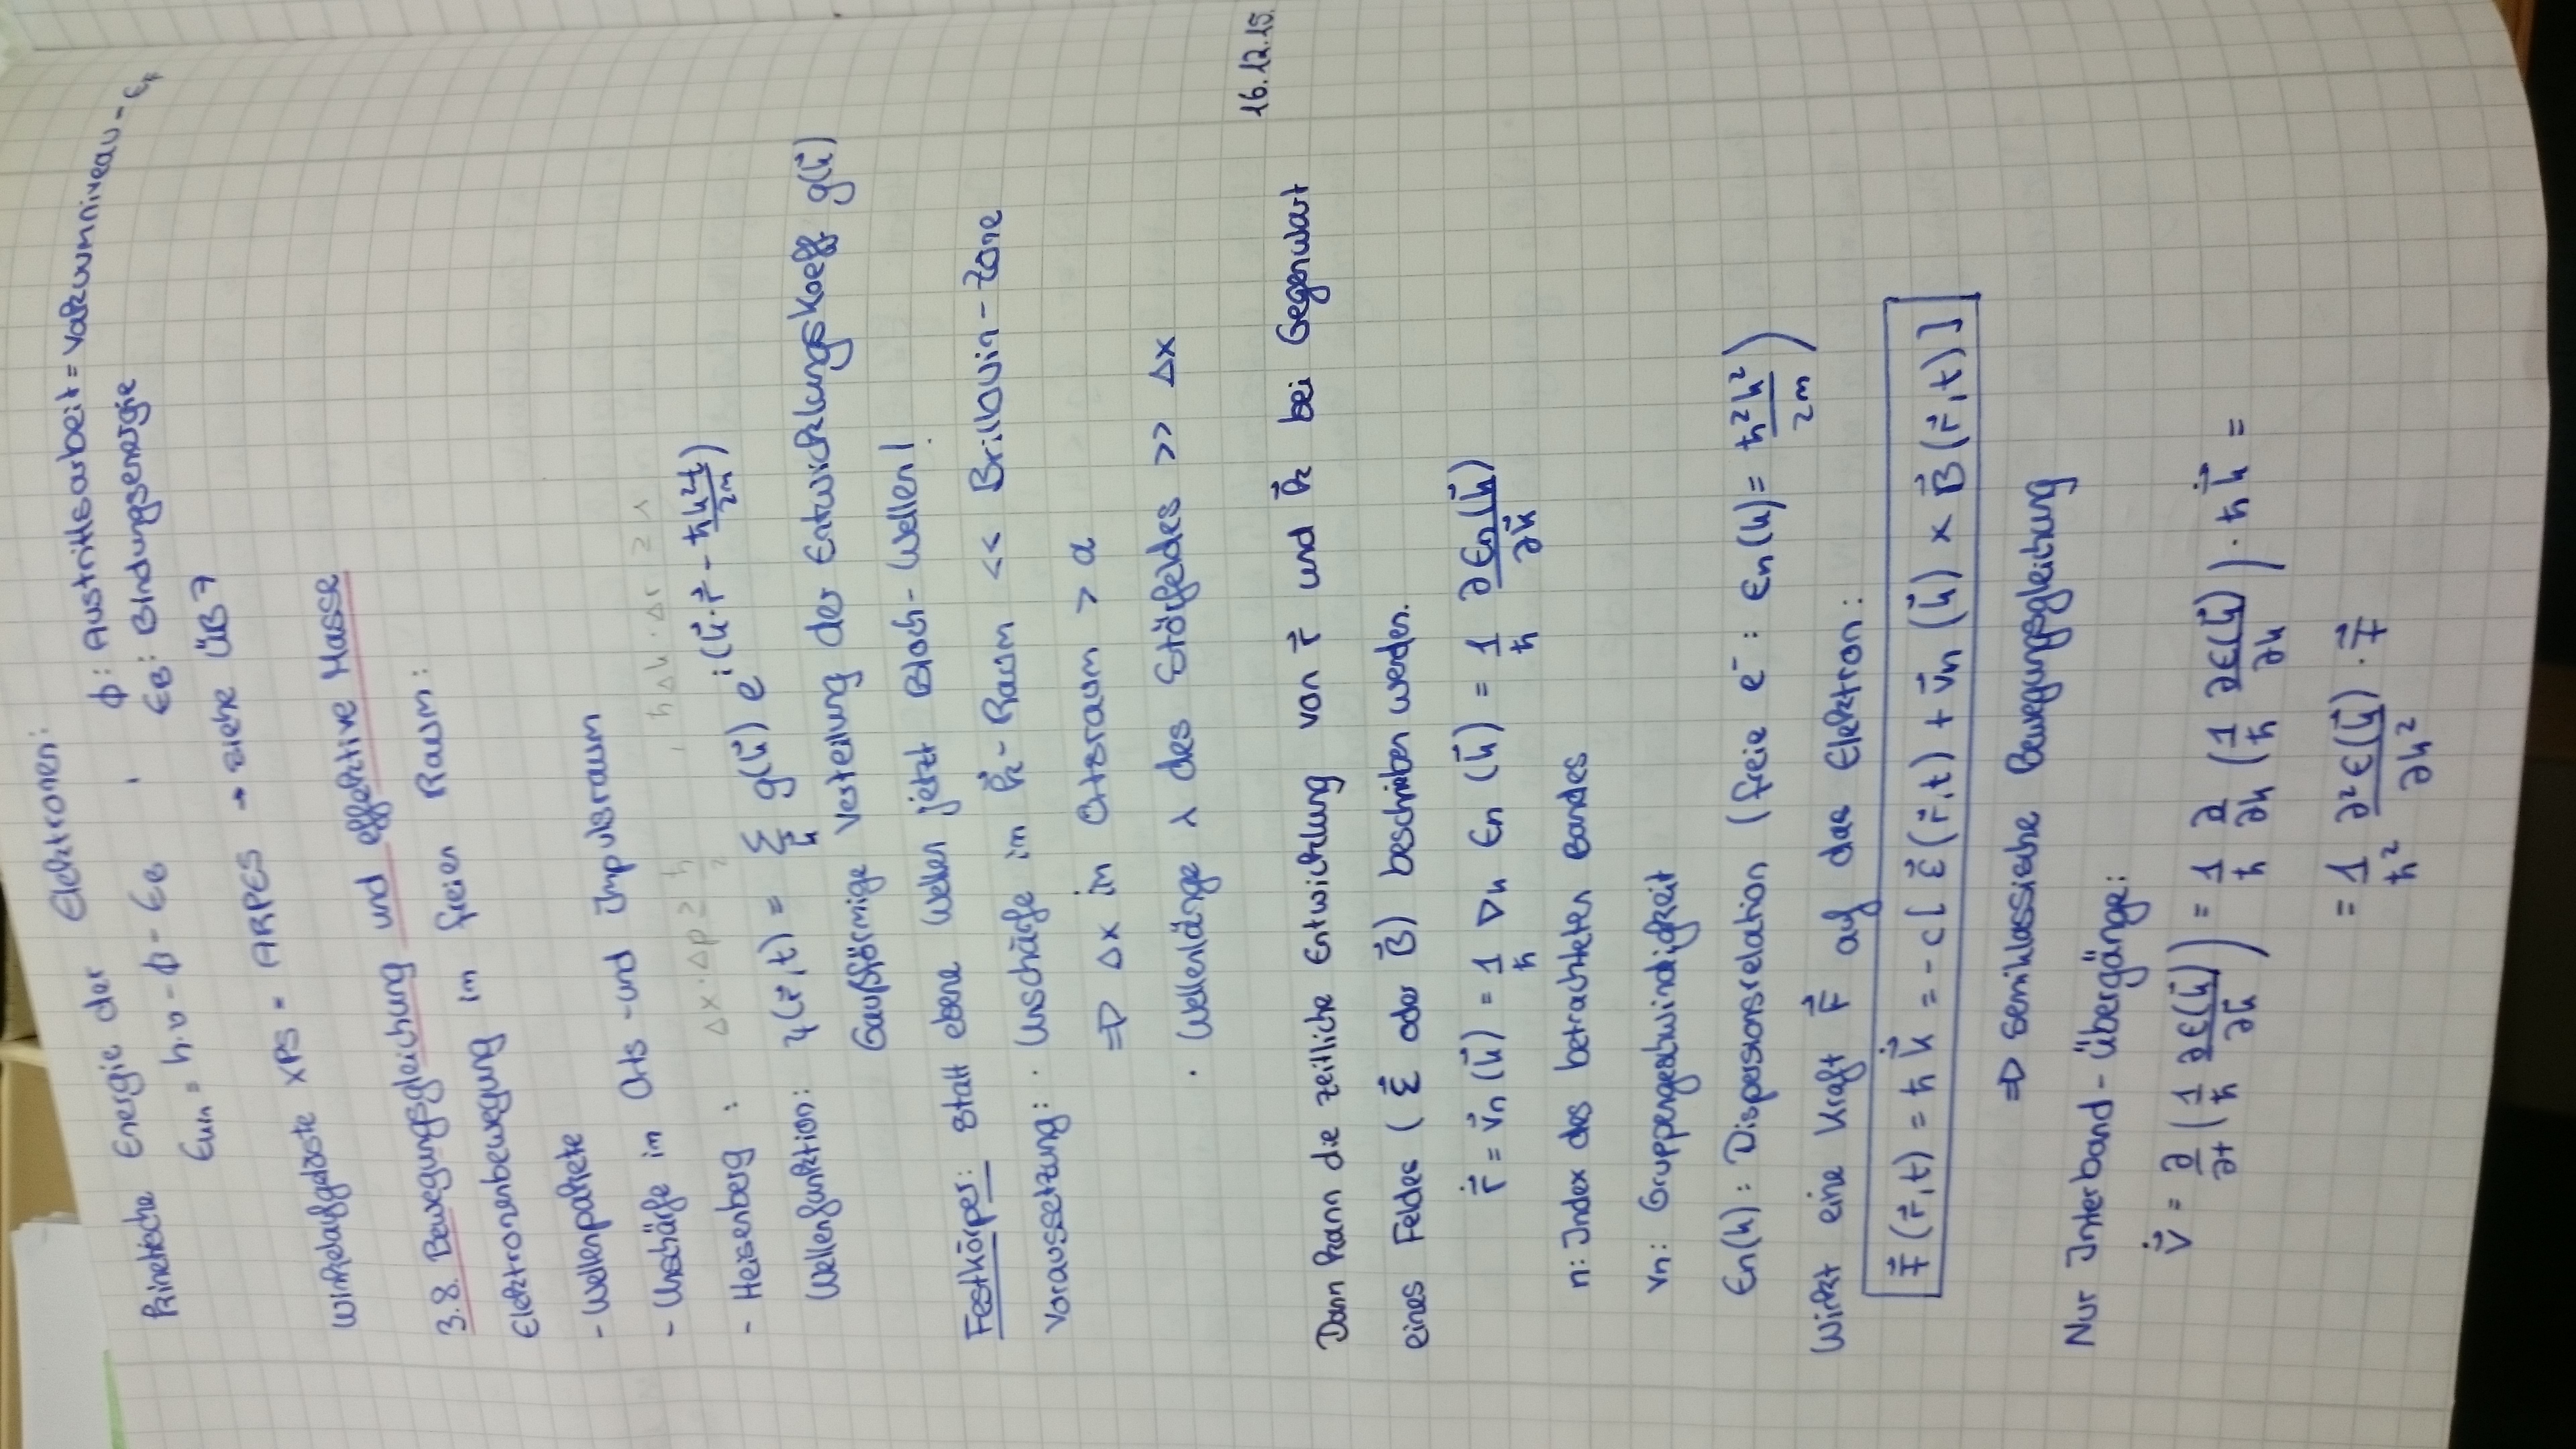 Kinetische Energie der Elektronen:
ϵkin = h·ν - ϕ - ϵB , ϕ: Austrittsarbeit = Vakuumniveau - ϵF
ϵB: Bindungsenergie
Winkelaufgelöste XPS = ARPES → siehe ÜB 7
3.8. Bewegungsgleichung und effektive Masse
Elektronenbewegung im freien Raum:
- Wellenpakete
- Unschärfe im Orts -und Impulsraum
- Heisenberg : Δx·Δp ≥ ℏ/2 , ℏΔk·Δr ≥ 1
Wellenfunktion: ψ(r⃗,t) = Σ_k⃗ g(k⃗) e^{i(k⃗·r⃗ - ℏk²t/2m)}
Gaußförmige Verteilung der Entwicklungskoeff g(k⃗)
Festkörper: Statt ebene Wellen jetzt Bloch-Wellen!
Voraussetzung: · Unschärfe im k⃗-Raum << Brillouin-Zone
⇒ Δx im Ortsraum > a
· Wellenlänge λ des Störfeldes >> Δx
16.12.15.
Dann kann die zeitliche Entwicklung von r⃗ und k⃗ bei Gegenwart
eines Feldes (ℰ⃗ oder B⃗) beschrieben werden.
ṙ⃗ = v⃗n(k⃗) = 1/ℏ ∇k ϵn(k⃗) = 1/ℏ ∂ϵn(k⃗)/∂k⃗
n: Index des betrachteten Bandes
vn: Gruppengeschwindigkeit
ϵn(k): Dispersionsrelation (freie e⁻: ϵn(k) = ℏ²k²/2m)
Wirkt eine Kraft F⃗ auf das Elektron:
F⃗(r⃗,t) = ℏk̇⃗ = -e[ℰ⃗(r⃗,t) + v⃗n(k⃗) × B⃗(r⃗,t)]
⇒ Semiklassische Bewegungsgleichung
Nur Interband-Übergänge:
v̇⃗ = ∂/∂t (1/ℏ ∂ϵ(k⃗)/∂k⃗) = 1/ℏ ∂/∂k (1/ℏ ∂ϵ(k⃗)/∂k) · ℏk̇⃗ =
= 1/ℏ² ∂²ϵ(k⃗)/∂k² · F⃗